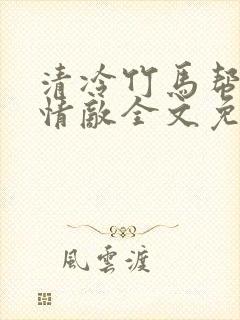 清冷竹馬幫
情敵全文免
風雲渡